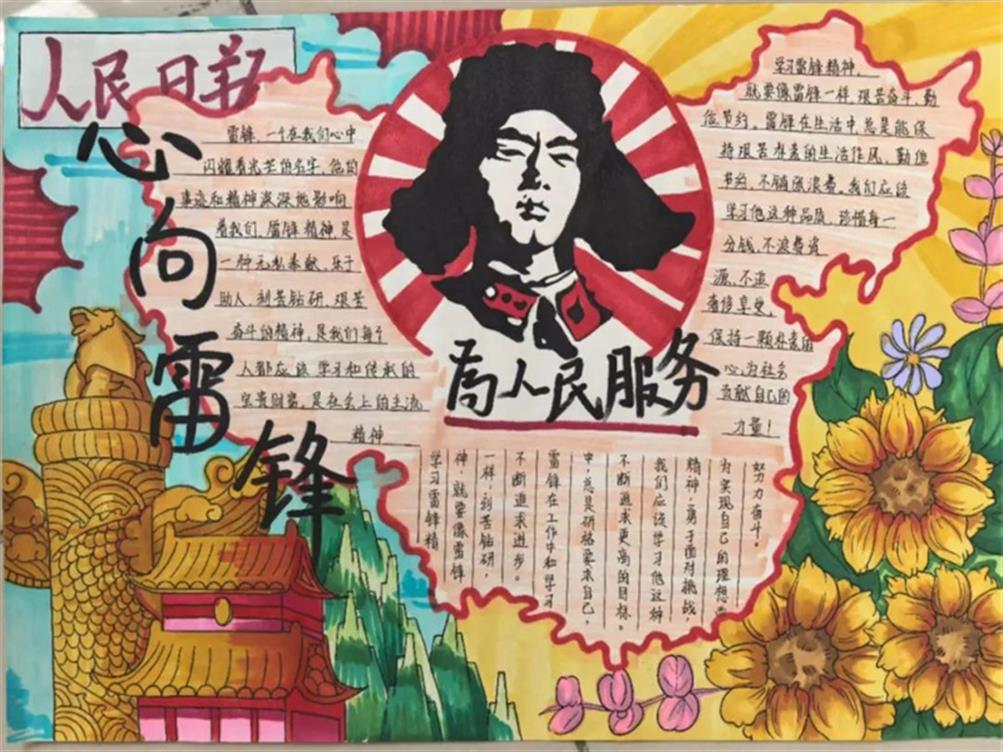 人民日报
心向雷锋
雷锋,一个在我们心中
闪耀着光芒的名字,他的
事迹和精神深深地影响
着我们,雷锋精神是
一种无私奉献、乐于
助人、刻苦钻研、艰苦
奋斗的精神,是我们每个
人都应该学习和传承的
宝贵财富,是社会上的主流
精神
为人民服务
学习雷锋精神,
就要像雷锋一样艰苦奋斗、勤
俭节约。雷锋在生活中总是能保
持艰苦朴素的生活作风,勤俭
节约,不铺张浪费。我们应该
学习他这种品质,珍惜每一
分钱,不浪费资
源,不追
奢侈享受,
保持一颗朴素的
心,为社会
贡献自己的
力量!
学习雷锋精
神,就要像雷锋
一样,刻苦钻研,
不断追求进步。
雷锋在工作中和学习
中,总是研格要求自己,
不断追求更高的目标。
我们应该学习他这种
精神,勇于面对挑战,
为实现自己的理想
努力奋斗。